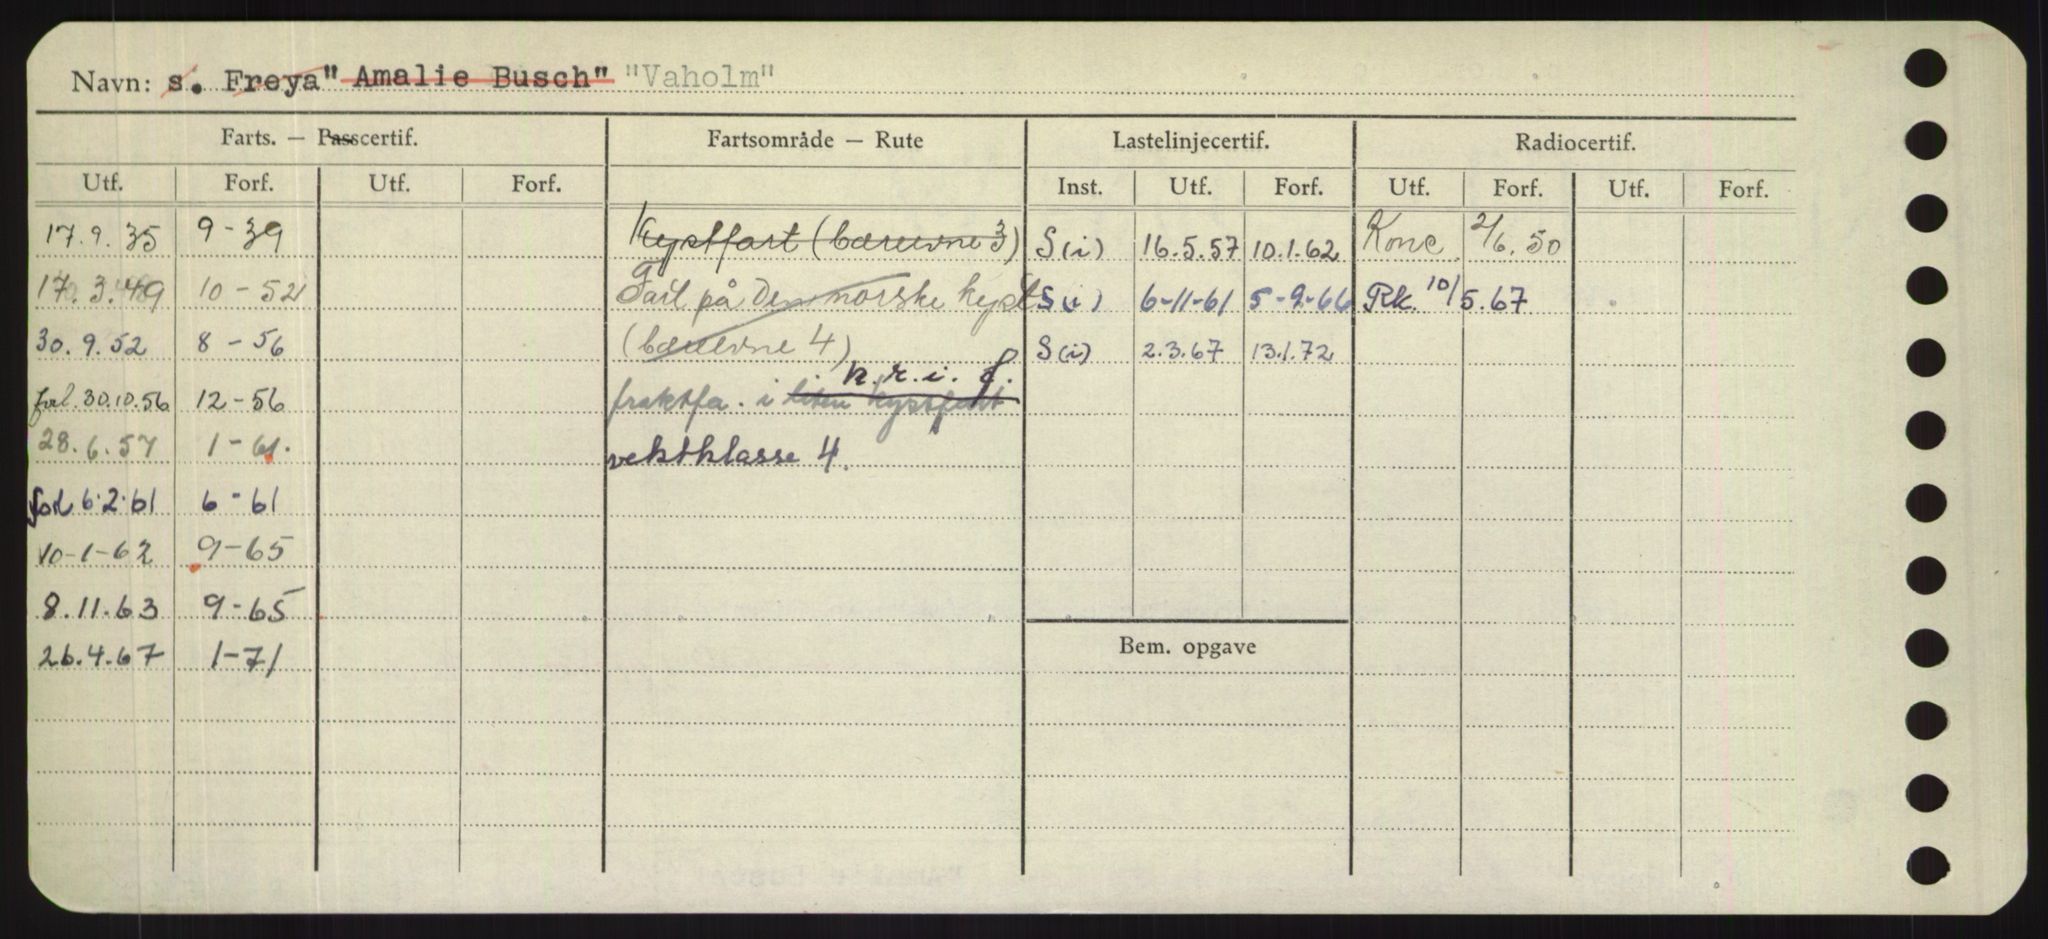 Navn: s. Freya" Amalie Busch" "Vaholm"
Farts. — Passcertif. Fartsområde — Rute Lastelinjecertif. Radiocertif.
Utf. Forf. Utf. Forf. Inst. Utf. Forf. Utf. Forf. Utf. Forf.
17.9.35 9-39 Kystfart (bæreevne 3) S(i) 16.5.57 10.1.62 Konc 2/6.50
17.3.49 10-52 Fart på Den norske kyst S(i) 6-11-61 5-9-66 Rk. 10/5.67
30.9.52 8-56 (bæreevne 4) S(i) 2.3.67 13.1.72
k.r.i. f.
forl. 30.10.56 12-56 fraktfa. i liten kystfart
28.6.57 1-61. vektklasse 4.
forl 6.2.61 6-61
10-1-62 9-65
8.11.63 9-65
26.4.67 1-71
Bem. opgave